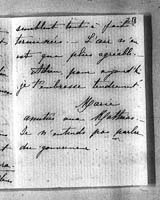 semblent tout à fait
terminées. L'air n'en
est que plus agréable.
Adieu pour aujourd'hui
je t'embrasse tendrement
Marie
amitiés aux Mathieu.
Je n'entends pas parler
du gouverneur.